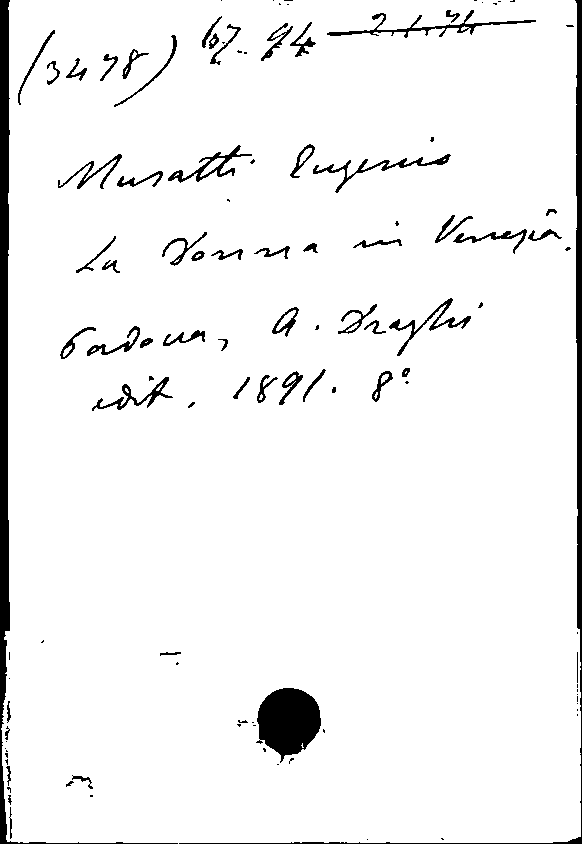 (3478) 67. 94. 2.1.74
Musatti Eugenio
La Donna in Venezia.
Padova, A. Draghi
edit. 1891. 8°